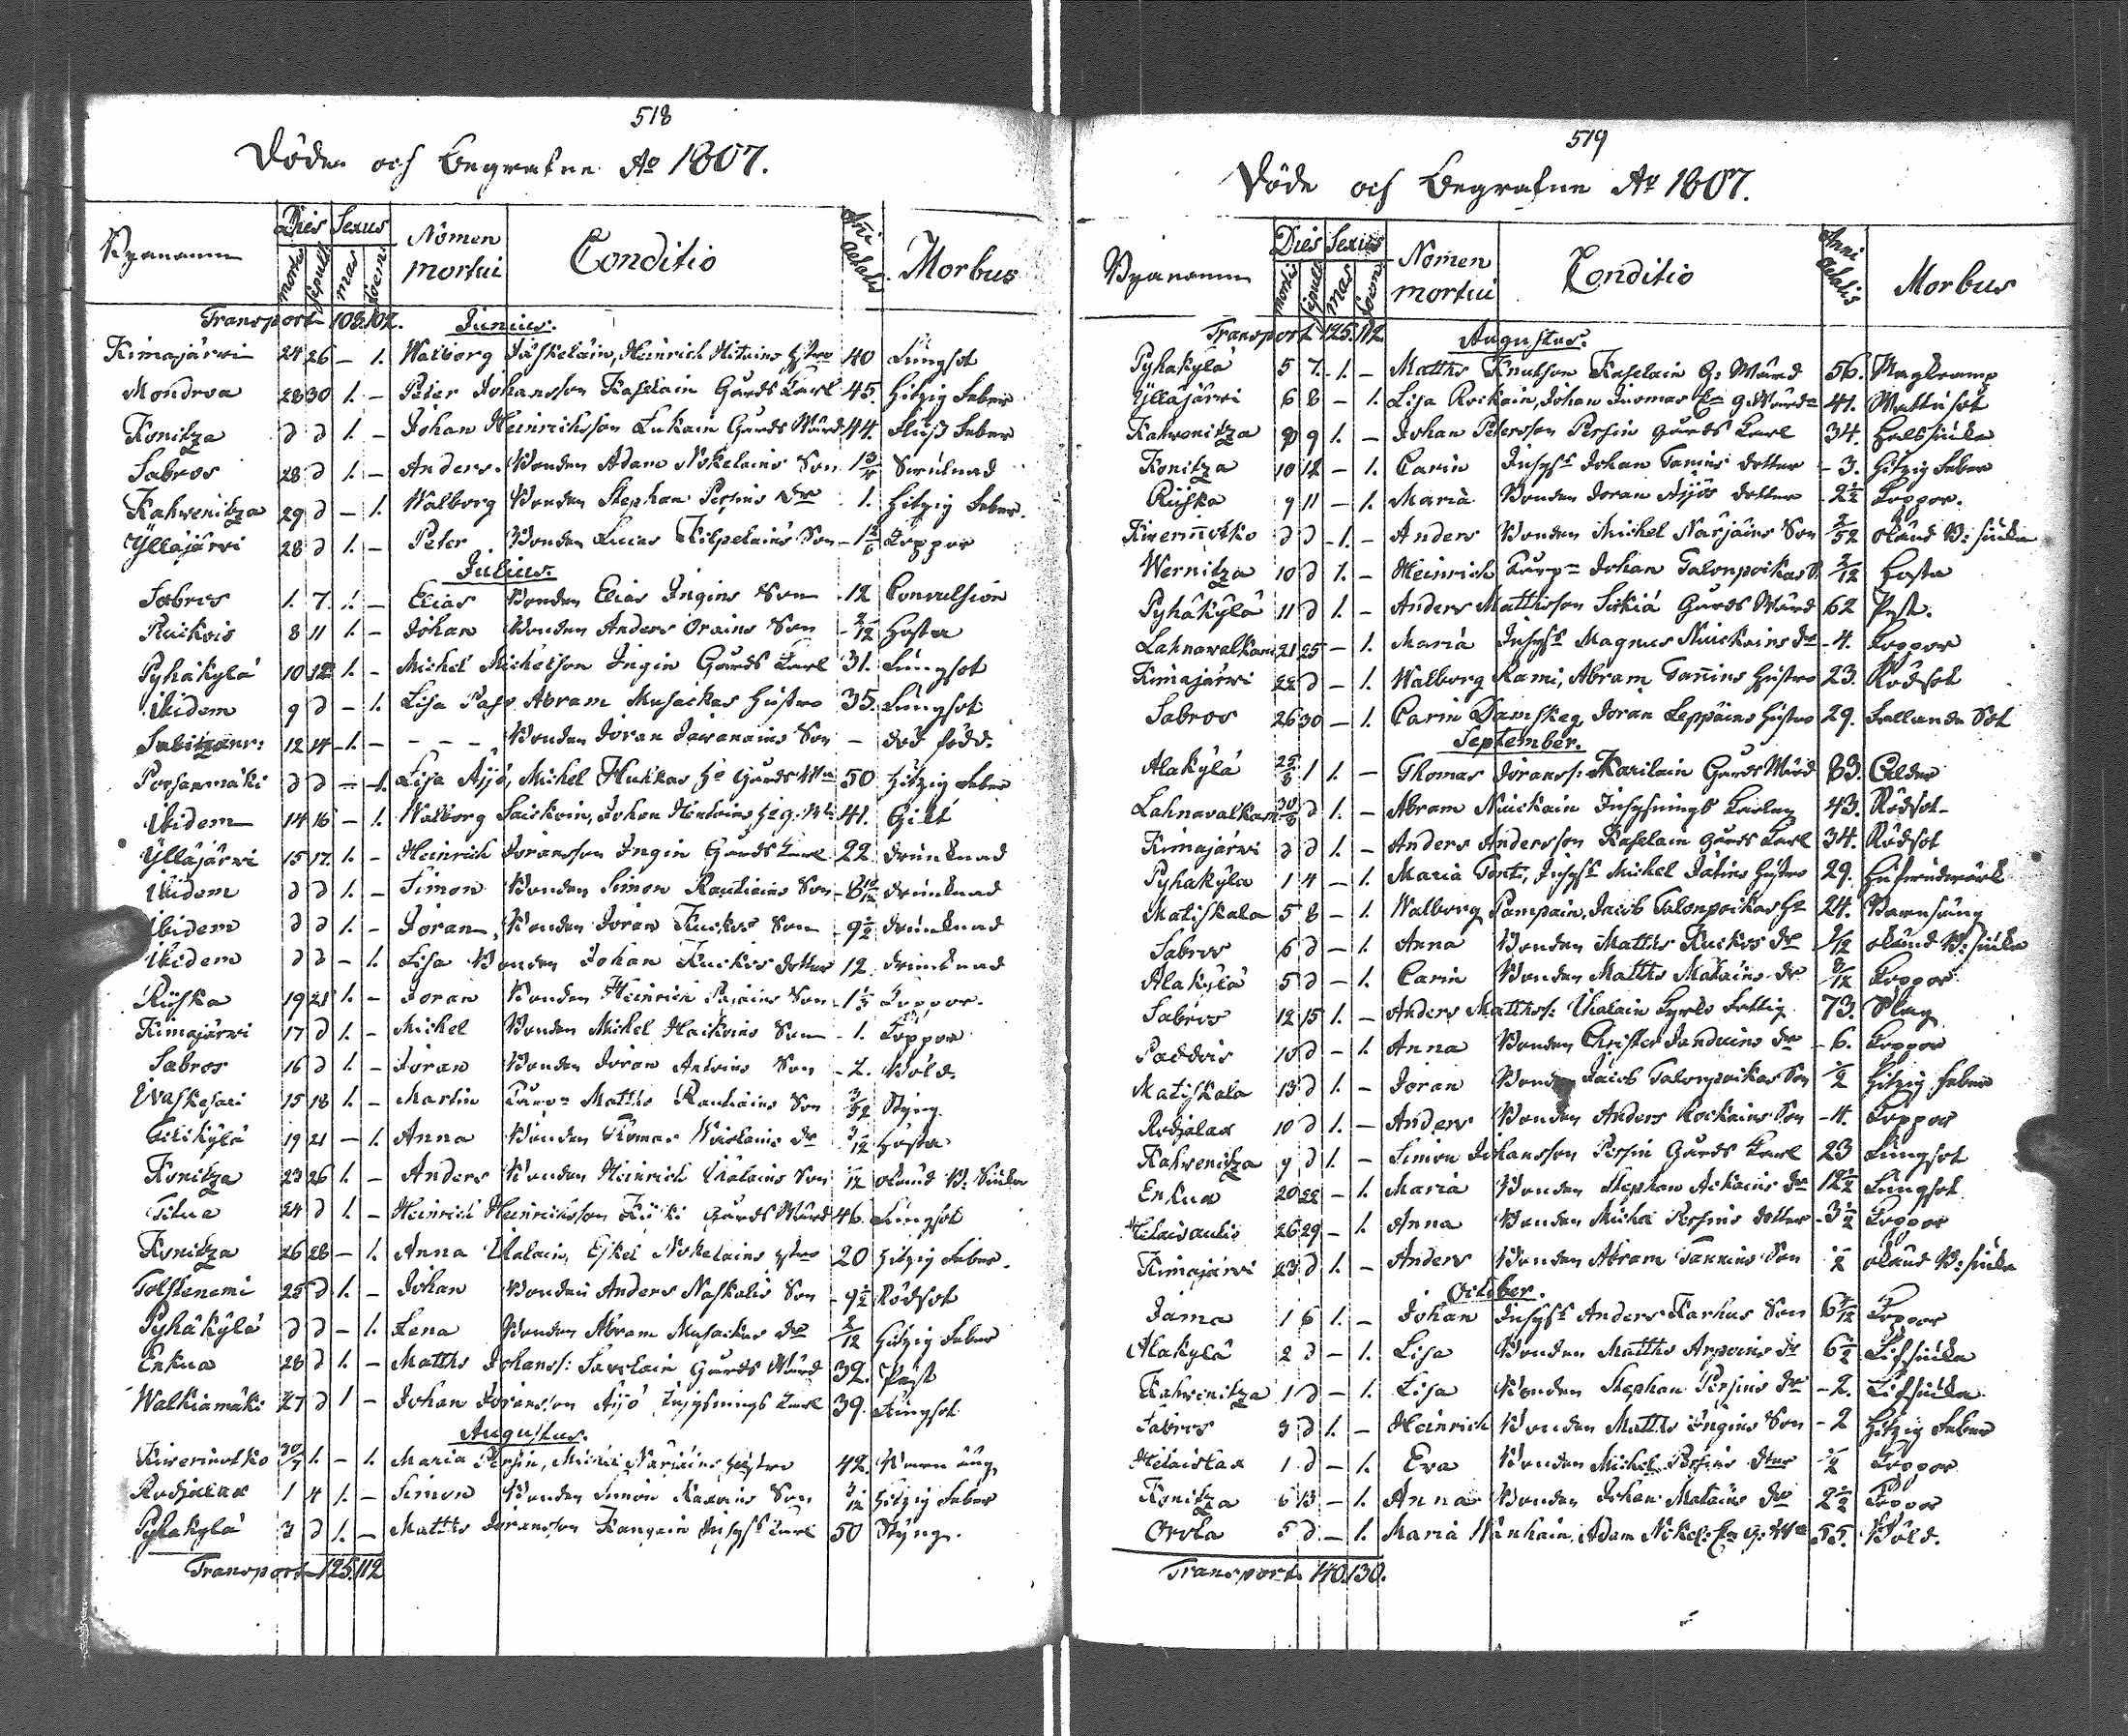 518
Döde och Begrafne Ao 1807.
Byanamn Dies Sexus Nomen mortui Conditio Anni Aetatis Morbus
mortis sepult mas foem
Transport 108. 102. Junius.
Kimajärvi 24 26 – 1. Walborg Jäskeläin, Heinrich Hitains hstro 40 Lungsot
Mondroa 28 30 1. – Peter Johansson Kaselain Gårds Karl 45. Hitzig feber
Konitza d d 1. – Johan Heinrichsson Lukain Gårds Wärd 44. Fluss feber
Sabros 28 d 1. – Anders Bonden Adam Nokelains Son Swulnad
Kahwenitza 29 d – 1. Walborg Bonden Stephan Persins dr 1. Hitzig feber.
Ylläjärvi 28 d 1. – Peter Bonden Lucas Kilpelains Son Koppor
Julius.
Sabros 1. 7. 1. – Elias Bonden Elias Ingins Son 12 Convulsion
Ruikois 8 11 1. – Johan Bonden Anders Orains Son 2/12 Hosta
Pyhäkylä 10 12 1. – Michel Michelsson Ingin Gårds Karl 31. Lungsot
Ibidem 9 d – 1. Lisa Abram Musackas Hustro 35. Lungsot
12 14 1. – – – – Bonden Joran Son – död född.
Porsanmäki d d – 1. Lisa Äijö, Michel Hukkas He Gårds Wn 50 Hitzig feber
Ibidem 14 16 – 1. Walborg Saickoin, Johan 41. Gikt
Ylläjärvi 15 17. 1. – Heinrich Joransson Ingin Gårds Karl 22. drunknad
Ibidem d d 1. – Simon Bonden Simon Rautiains Son drunknad
Ibidem d d 1. – Joran, Bonden Joran Kuckos Son 9 1/2 drunknad
Ibidem d d – 1. Lisa Bonden Johan Kuckos dotter 12. drunknad
Riiska 19 21 1. – Joran Bonden Heinrich Son 1 1/2 Koppor.
Kimajärvi 17 d 1. – Michel Bonden Michel Haikoins Son 1. Koppor
Sabros 16 d 1. – Joran Bonden Joran Antoins Son Bold.
15 18 1. – Martin Matths Rautiains Son 3/52 Styng
19 21 – 1. Anna Bonden Thomas dr Hosta
Konitza 23 26 1. – Anders Bonden Heinrich Uhalains Son okänd B: Siuka
24 d 1. – Heinrich Heinrichsson Gårds Wärd 46. Lungsot
Konitza 26 28 – 1. Anna Uhalain, Eskel Nokelains hstro 20 Hitzig feber.
Tolstenemi 25 d 1. – Johan Bonden Anders Naskalis Son 9 1/2 Rödsot
Pyhäkylä d d – 1. Lena Bonden Abram Musackas dr Hitzig feber
Enkua 28 d 1. – Matths Johanss: Savolain Gårds Wärd 39. Pest
Walkiamäki 27 d 1 – Johan Joransson Äijö Inhysnings Karl 39. Lungsot
Augustus.
30/7 1. – 1. Maria Persin, Michel Närjäins hustro 42.
Rodjalax 1 4 1. – Simon Bonden Simon Son Hitzig feber
Pyhäkylä 3 d 1. – Matths Joransson Kangain Inhyss Karl 50 Styng.
Transport 125. 112
519
Döde och Begrafne Ao 1807.
Byanamn Dies Sexus Nomen mortui Conditio Anni Aetatis Morbus
mortis sepult mas foem
Transport 125. 112 Augustus.
Pyhäkylä 5 7. 1. – Matths Knutson Kaselain G: Wärd 56. Magkramp
Ylläjärvi 6 8 – 1. Lisa Rockain, Johan 41. Wattusot
Kahwenitza 8 9 1. – Johan Petersson Persin Gårds Karl 34. Halssiuka
Konitza 10 12 – 1. Carin Inhyss Johan Tanins dotter 3. Hitzig feber
Riiska 9 11 – 1. Maria Bonden Joran Äijös dotter 2 1/2 Koppor.
d d 1. – Anders Bonden Michel Närjäins Son 2/52 okänd B: siuka
Wernitza 10 d 1. – Heinrich Johan Talonpoikas S. 2/12 Hosta
Pyhäkylä 11 d 1. – Anders Matthsson Siskiä Gårds Wärd 62 Pest.
Lahnavalkam 21 25 – 1. Maria Inhyss Magnus Nuickains dr 4. Koppor
Kimajärvi 22 d – 1. Walborg Rami, Abram Tanins Hustro 23. Rödsot
Sabros 26 30 – 1. Carin Damskeg, Joran Leppäins Hustro 29. Fallande Sot
September.
Alakylä 25/8 1 1. – Thomas Jorans: Karilain Gårds Wärd 83. Ålder
Lahnavalkam 30/8 d 1. – Abram Nuickain Inhysnings Karl 43. Rödsot
Kimajärvi d d 1. – Anders Andersson Kaselain Gårds Karl 34. Rödsot
Pyhäkylä 1 4 – 1. Maria Tont, Inhyss Michel Jätins Hustro 29. Hufwudwärk
Matiskala 5 8 – 1. Walborg Pampain, Jacob Talonpoikas He 24. Barnsäng
Sabros 6 d – 1. Anna Bonden Matths Kuckos dr okänd B: siuka
Alakylä 5 d – 1. Carin Bonden Matths Matains dr Koppor
Sabros 12 15 1. – Anders Matthss: Uhalain Kyrko Fattig 73. Slag
Paddois 10 d – 1. Anna Bonden Christer Junduins dr 6. Koppor
Matiskala 13 d 1. – Joran Bonden Jacob Talonpoikas Son 1/2 Hitzig feber
Rodjalax 10 d 1. – Anders Bonden Anders Rockains Son 4. Koppor
Kahwenitza 9 d 1. – Simon Johansson Persin Gårds Karl 23 Lungsot
Enkua 20 22 – 1. Maria Bonden Stephan Ackains dr 12 1/2 Lungsot
26 29 – 1. Anna Bonden Michel Persins dotter 3 1/2 Koppor
Kimajärvi 23 d 1. – Anders Bonden Abram Tannins Son 1/2 okänd B: siuka
October.
Jama 1 6 1. – Johan Inhyss Anders Karhus Son Koppor
Alakylä 2 d – 1. Lisa Bonden Matths Arpoins dr 6 1/2 Lifsiuka
Kahwenitza 1 d – 1. Lisa Bonden Stephan Persins dr 2. Lifsiuka
Sabros 3 d 1. – Heinrich Bonden Matths Ingins Son 2 Hitzig feber
1 d – 1. Eva Bonden Michel Persins dtter 1/2 Koppor
Konitza 6 13 – 1. Anna Bonden Johan Matains dr 2 1/2 Koppor
Orola 5 d – 1. Maria Wänhain, Adam 55. Bold.
Transport 140. 130.